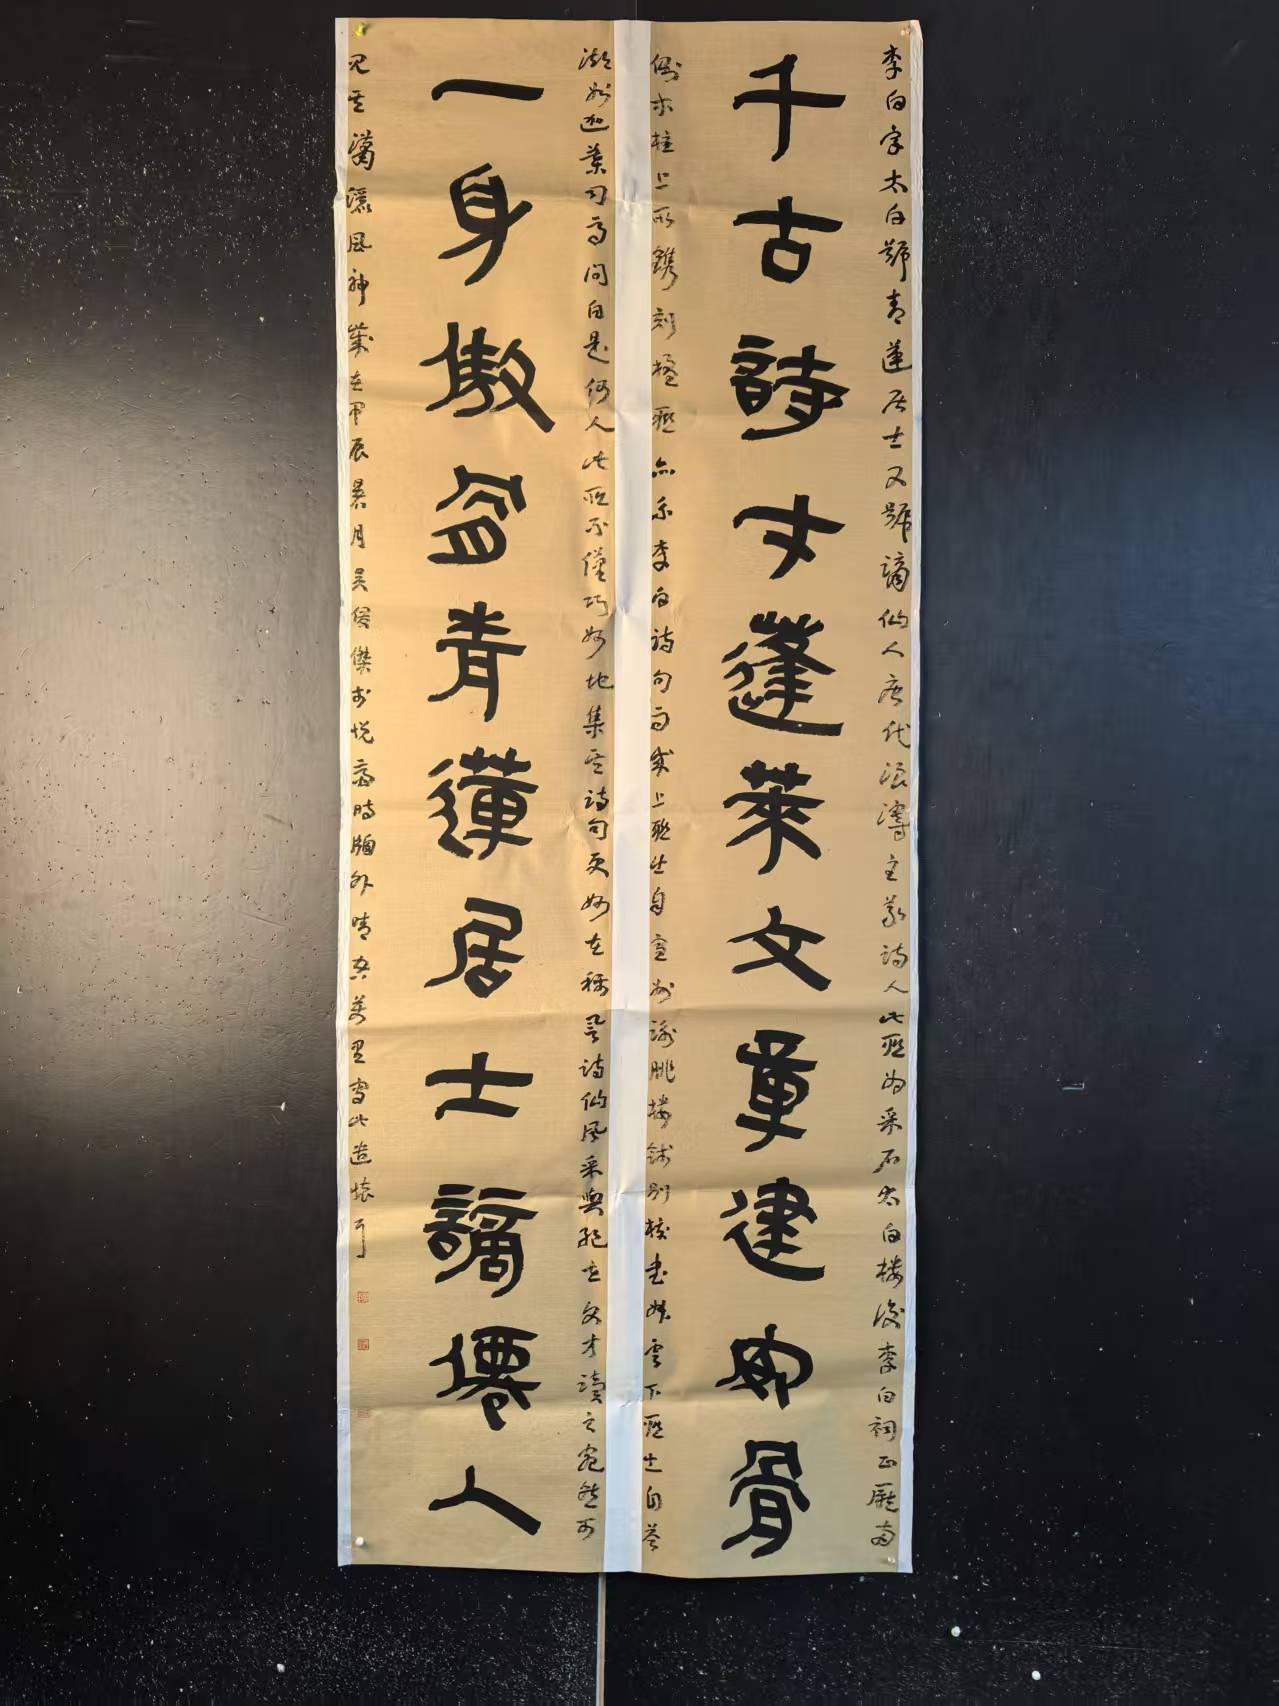 李白字太白號青蓮居士又號謫仙人唐代浪漫主義詩人此聯為采石太白樓後李白祠正廳兩
千古詩才蓬萊文章建安骨
側木柱上所鐫刻楹聯亦系李白詩句而成上聯出自宣州謝朓樓餞別校書叔雲下聯出自答
湖州迦葉司馬問白是何人此聯不僅巧妙地集其詩句更妙在稱号詩仙風采與絕世文才讀之宛然可
一身傲岸青蓮居士謫僊人
見其瀟灑風神歲在甲辰 月吳俊傑於悅 時牖外晴空萬里書此遣懷耳